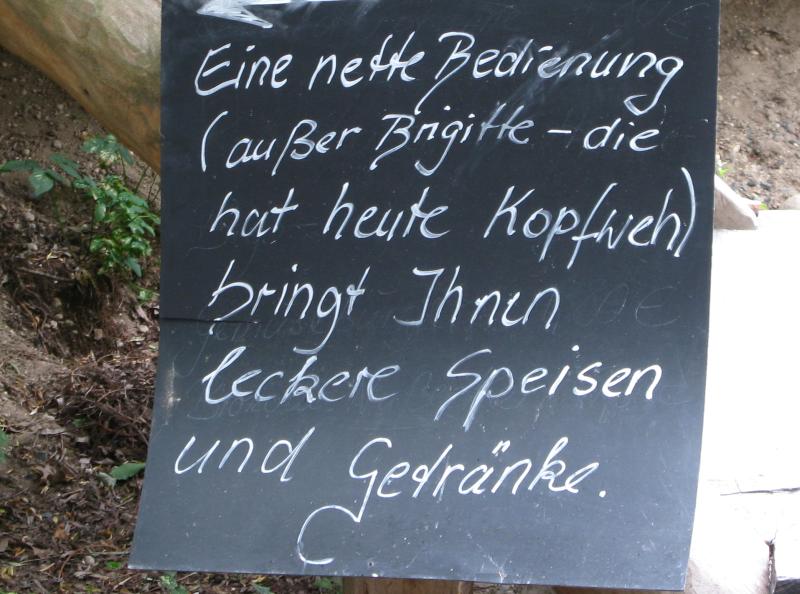 Eine nette Bedienung
(außer Brigitte – die
hat heute Kopfweh)
bringt Ihnen
leckere Speisen
und Getränke.